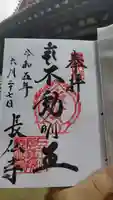 奉拝
不動明王
長仁寺
令和五年
六月二十七日